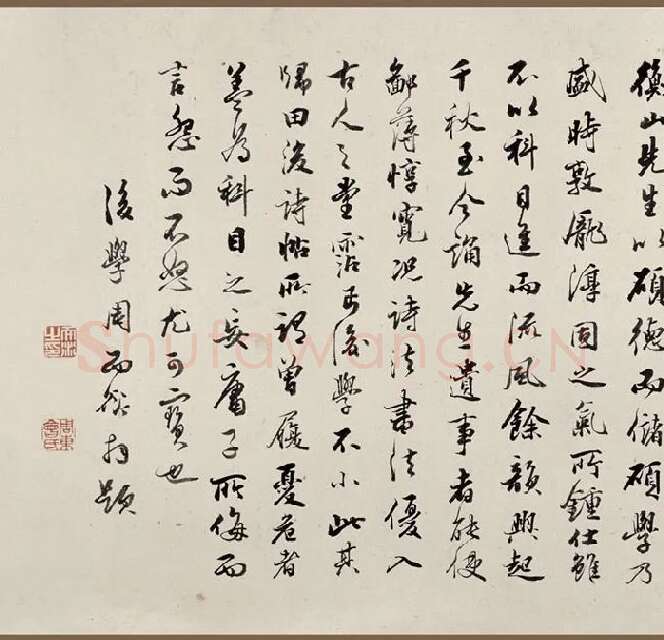 衡山先生以碩德而儲碩學乃
盛時敦龐淳固之氣所鍾仕雖
不以科目進而流風餘韻興起
千秋至今誦先生遺事者能使
鄙薄惇寬況詩法書法優入
古人之堂霑丐後學不小此其
歸田後詩帖所謂曾履憂危者
蓋為科目之妄庸子所侮而
言怨而不怒尤可寶也
後學周而拜題
Shufawang.CN